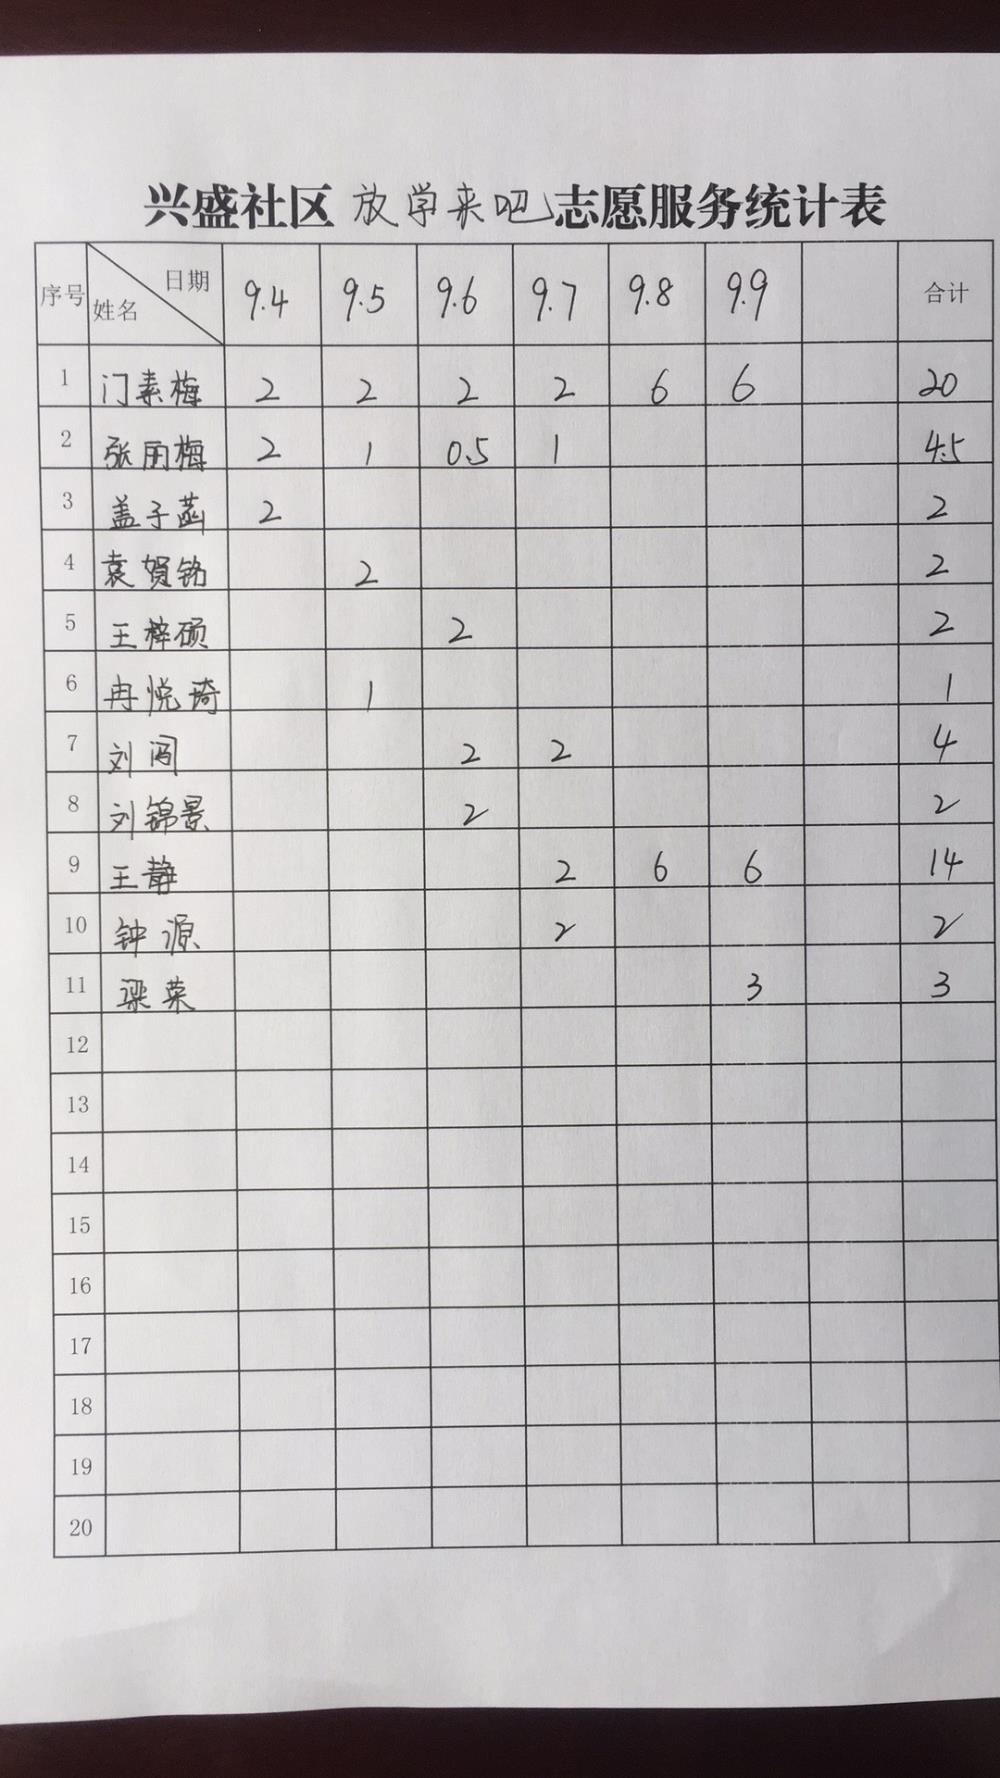 兴盛社区 放学来吧 志愿服务统计表
序号 日期 姓名 9.4 9.5 9.6 9.7 9.8 9.9 合计
1 门素梅 2 2 2 2 6 6 20
2 张丽梅 2 1 0.5 1 4.5
3 盖子菡 2 2
4 袁贺铭 2 2
5 王梓硕 2 2
6 冉悦琦 1 1
7 刘闯 2 2 4
8 刘锦景 2 2
9 王静 2 6 6 14
10 钟源 2 2
11 梁荣 3 3
12
13
14
15
16
17
18
19
20